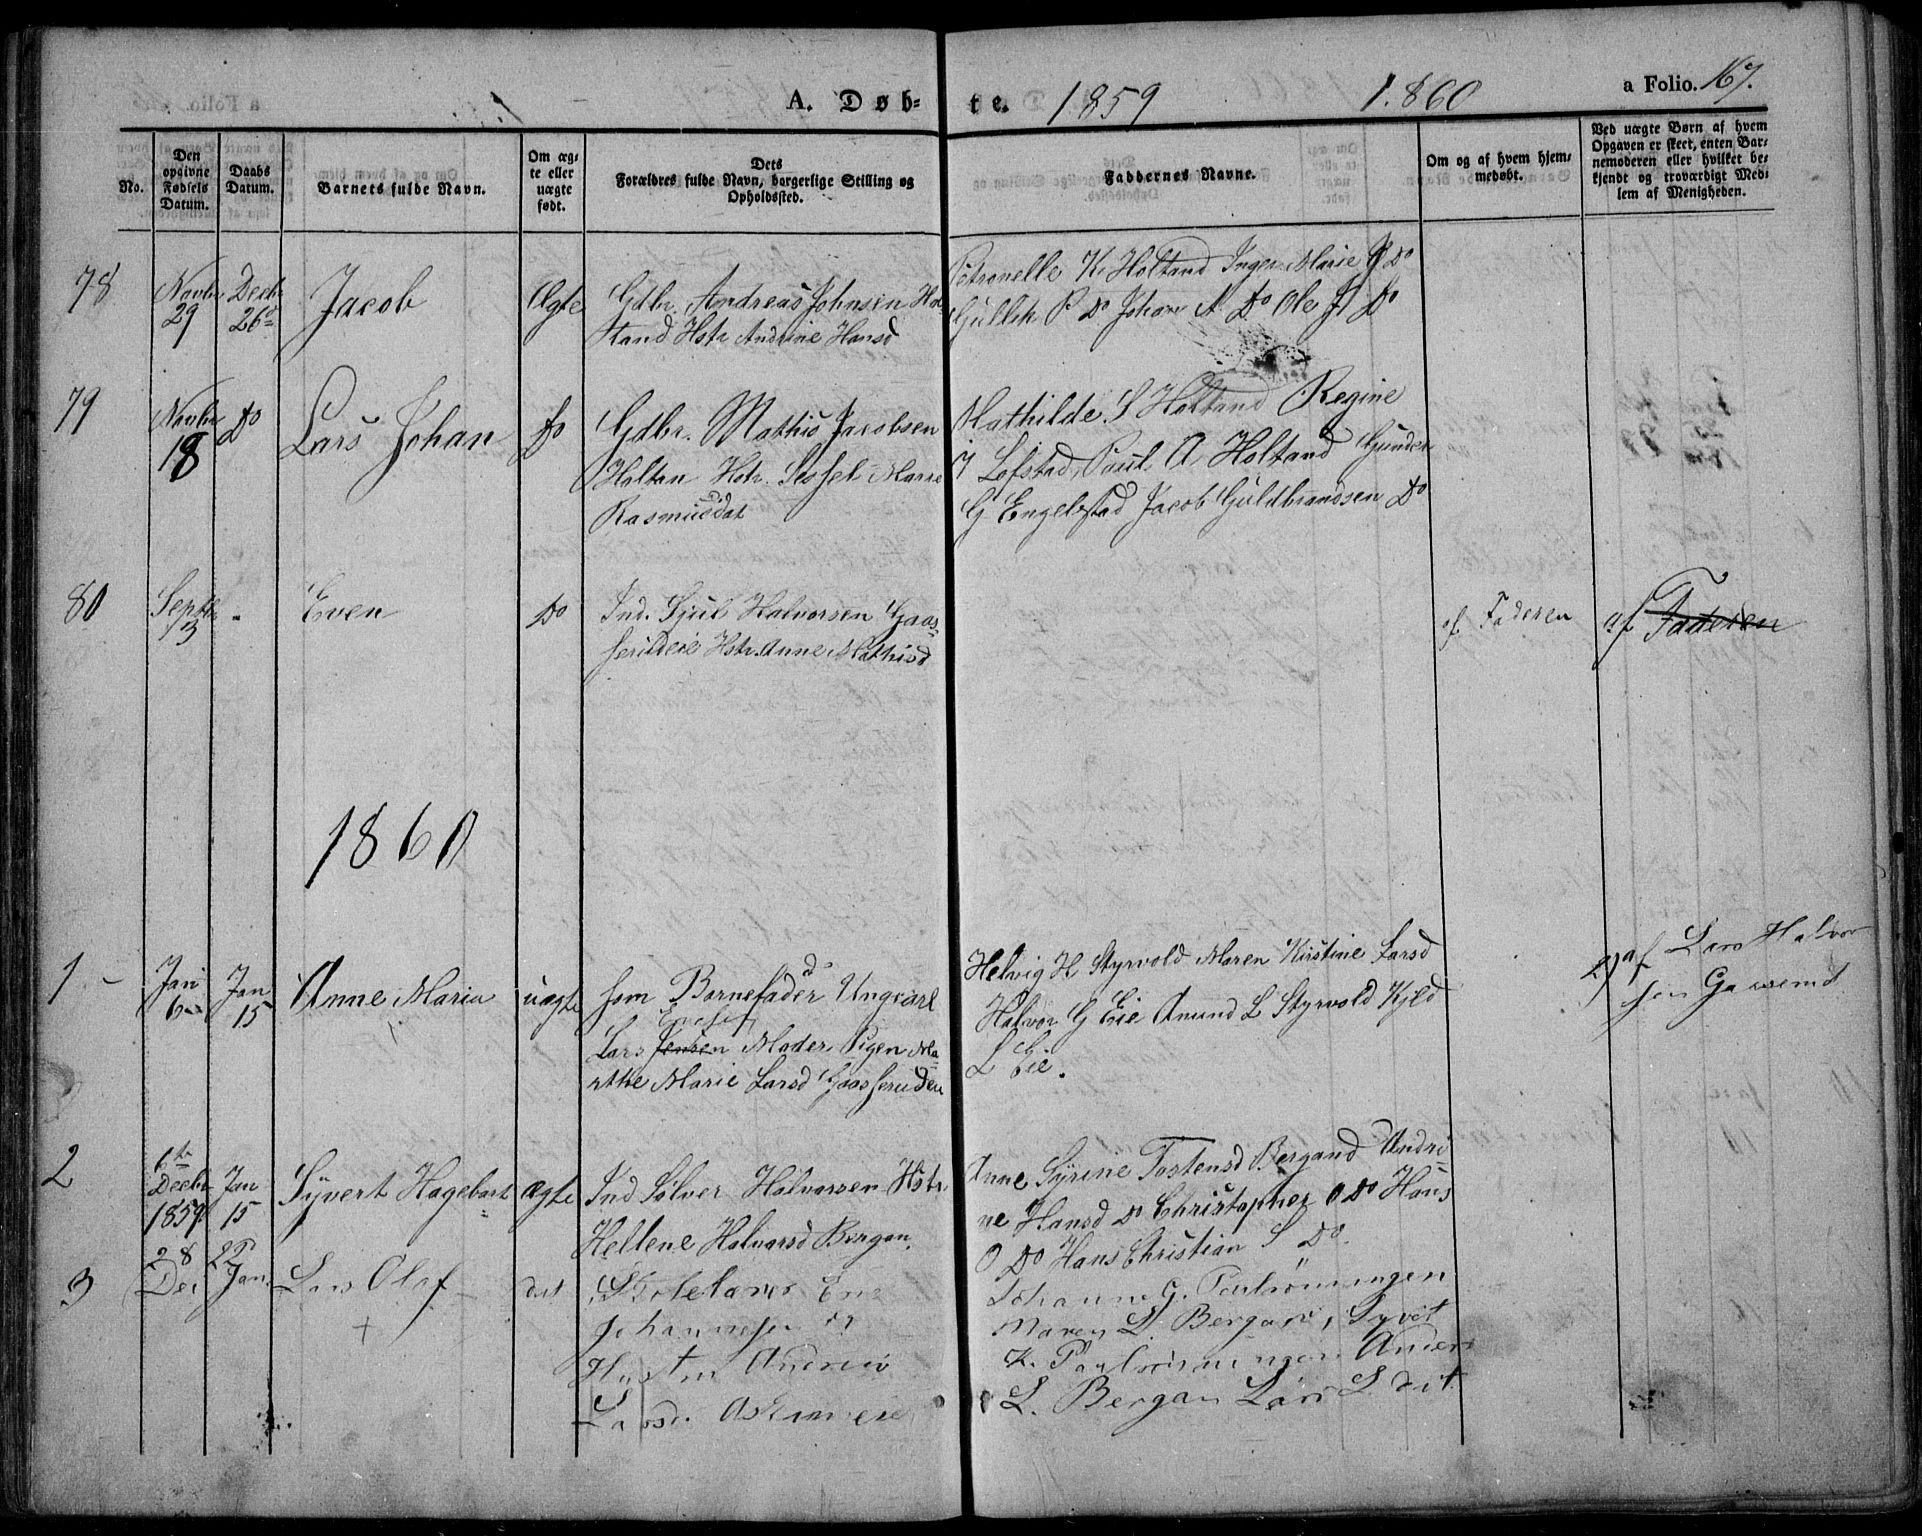 A. Døb- te. 1859 1860 a Folio. 167.
No.
Den opgivne Fødsels Datum.
Daabs Datum.
Barnets fulde Navn.
Om ægte eller uægte født.
Dets Forældres fulde Navn, borgerlige Stilling og Opholdssted.
Faddernes Navne.
Om og af hvem hjemmedøbt.
Ved uægte Børn af hvem Opgaven er skeet, enten Barnemoderen eller hvilket bekjendt og troværdigt Medlem af Menigheden.
78 Novbr 29 Decbr 26d Jacob Ægte
Gdbr. Andreas Johnsen Hol-
tand Hstr Andrine Hansd
Petronelle K. Holtand Inger Marie J Do
Gullik P Do Johan A Do Ole J Do
79 Novbr 18 Do Lars Johan Do
Gdbr. Mathis Jacobsen
Holtan Hstr. Sissel Marie
Rasmusdat
Mathilde S Holtand Regine
J Lofstad, Poul A Holtand Gunder
G Engelstad Jacob Guldbrandsen Do
80 Septbr 13 - Even Do
Ind. Sjul Halvorsen Gaas-
serudeie Hstr. Anne Mathisd
af Faderen
af Faderen
1860
1 - Jan 6 Jan 15 Anne Maria uægte
som Barnefader Ungkarl
Lars Jensen Moder Pigen Ma-
rthe Marie Larsd Gaasseruden
Helvig H Styrvold Maren Kirstine Larsd
Halvor G Eie Amund L Styrvold Kjeld
L Eie.
af Lars Halvor
sen
2 6te Decbr 1859 Jan 15 Syvert Hagebart ægte
Ind Sølver Halvorsen Hstr.
Hellene Halvorsd Bergan.
Anne Syrine Tostensd Bergand Andri-
ne Hansd Do Christopher O Do Hans
O Do Hans Christian S Do.
3 28 Dec 22 Jan. Lars Olaf - dit
Skolelærer
Johannesen
Hustru
Larsd.
Johanne G.
Maren L. Bergan, Syvert
K. Anders
L. Bergan Lars L dit